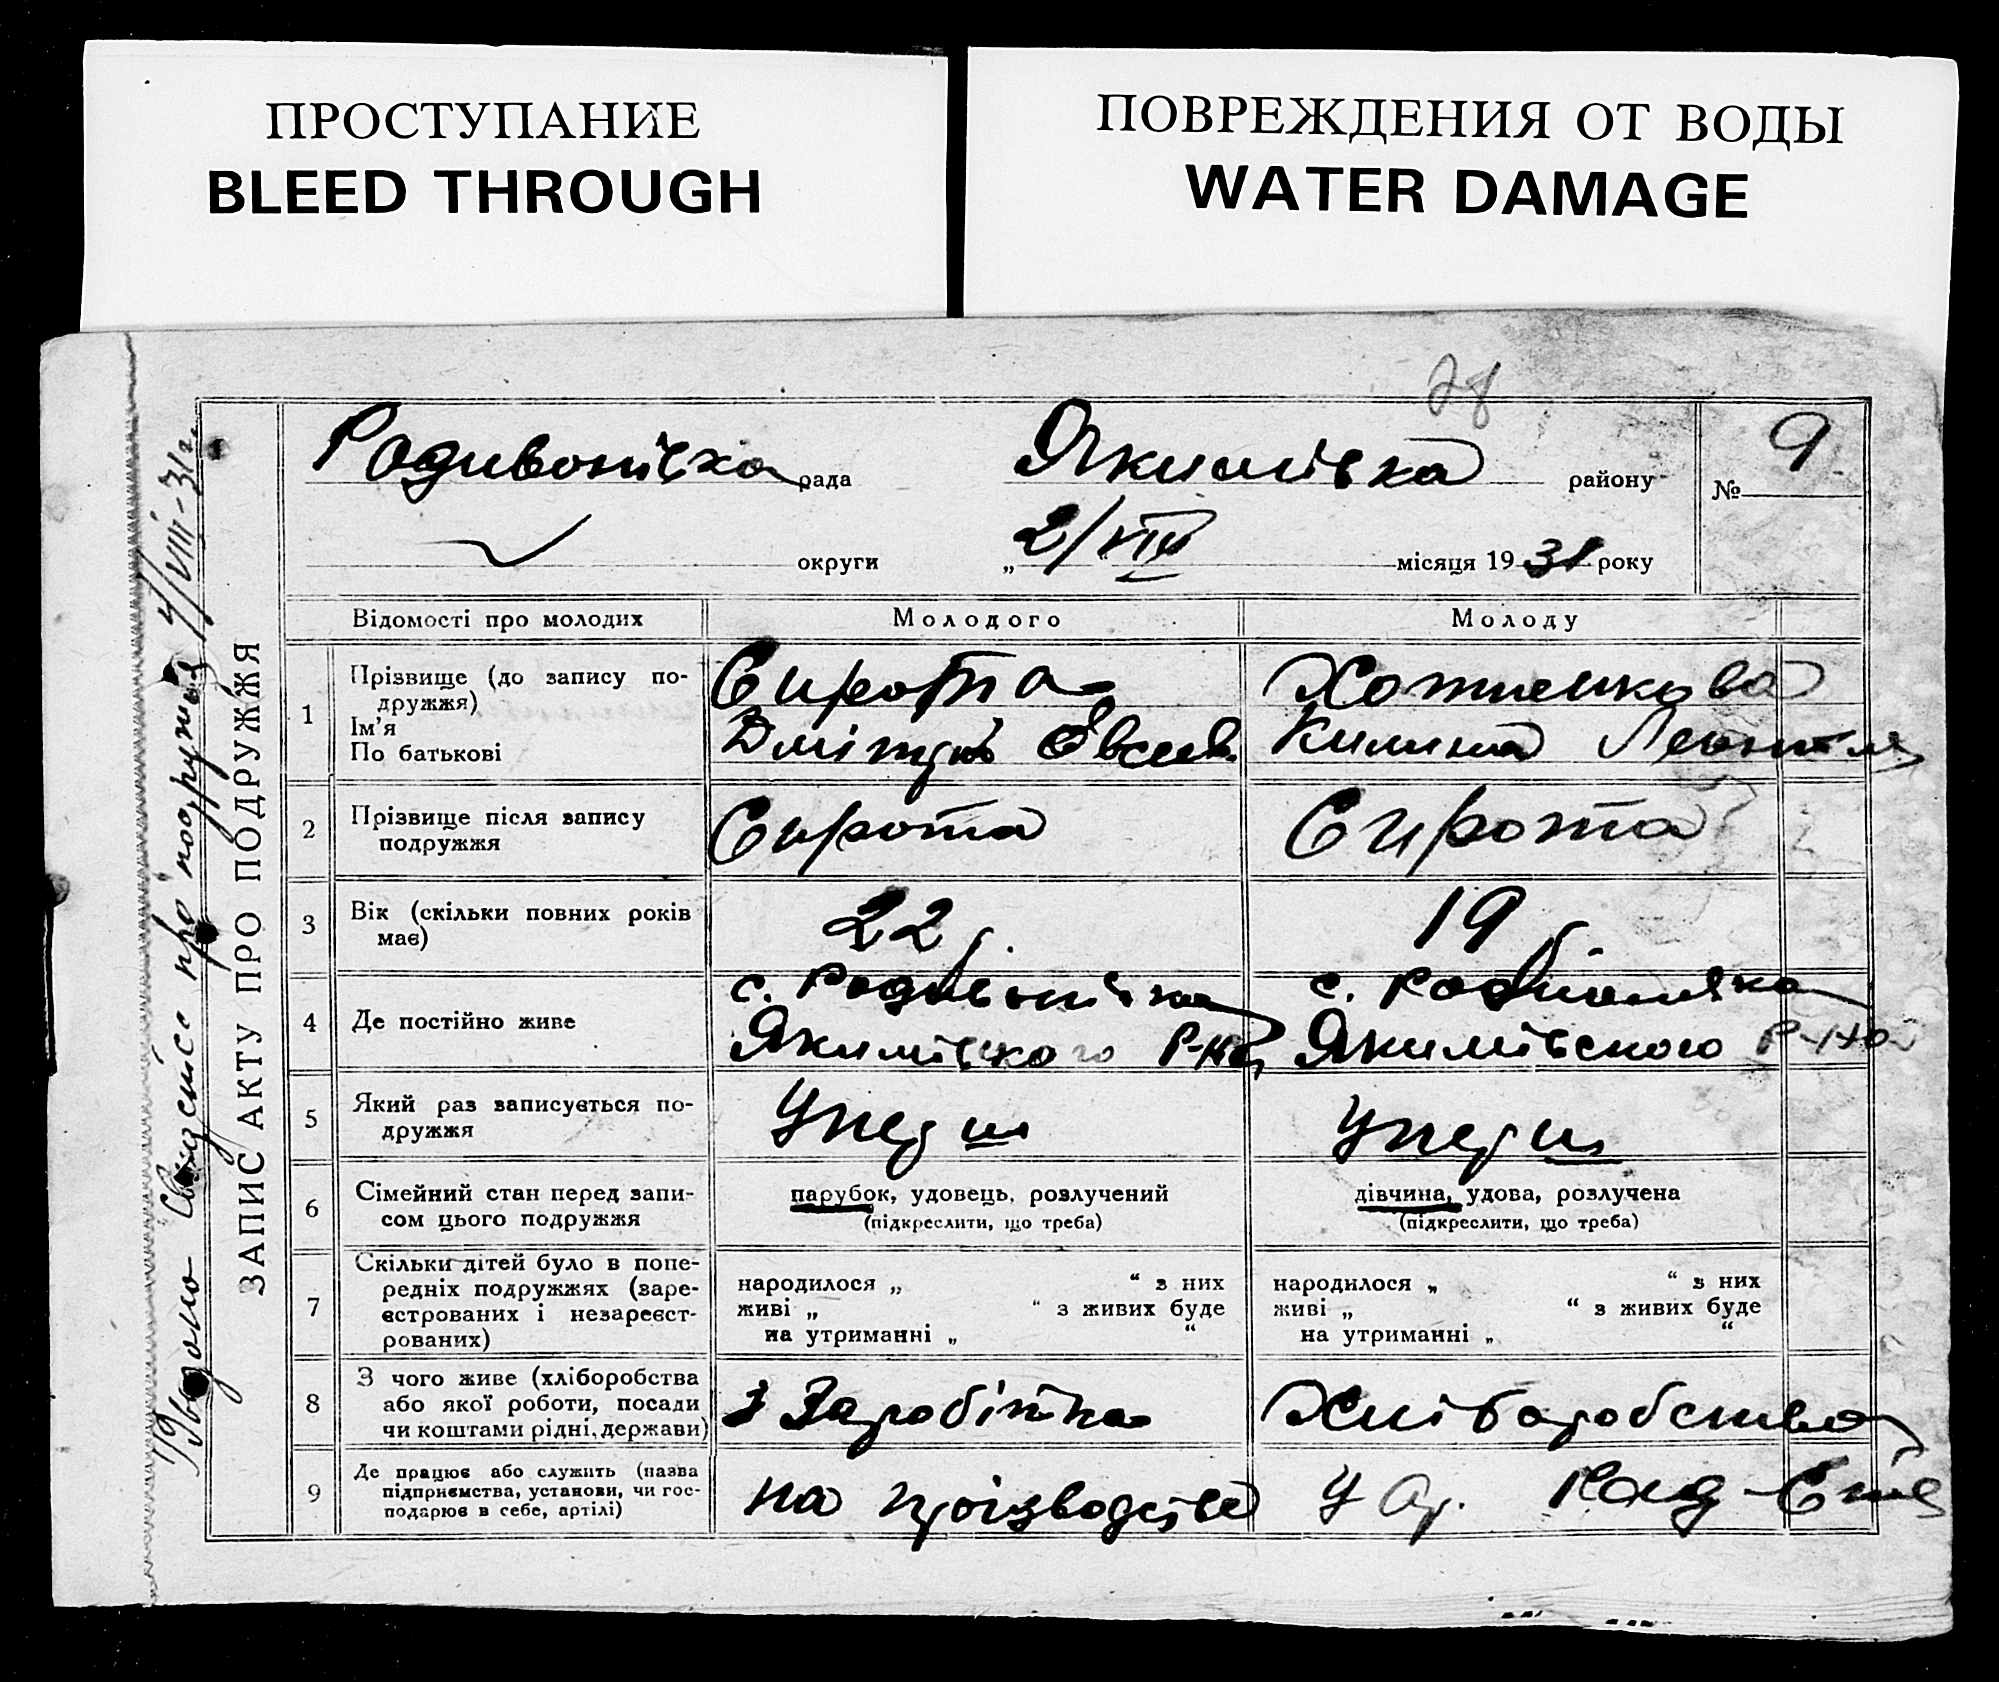 ПРОСТУПАНИЕ
BLEED THROUGH
ПОВРЕЖДЕНИЯ ОТ ВОДЫ
WATER DAMAGE
28
Родивонівка рада Якимівка району № 9
округи „2/VIII місяця 1931 року
ЗАПИС АКТУ ПРО ПОДРУЖЖЯ
про подружжя 4/VIII-31р.
Відомості про молодих Молодого Молоду
1 Прізвище (до запису по-
дружжя)
Ім'я
По батькові
Сирота
Дмітрій Євсеев.
Килина
2 Прізвище після запису
подружжя
Сирота Сирота
3 Вік (скільки повних років
має)
22 р. 19 р.
4 Де постійно живе
с. Родивонівка
Якимівського Р-на
с. Родивонівка
Якимівського Р-на
5 Який раз записується по-
дружжя
Уперш Уперш
6 Сімейний стан перед запи-
сом цього подружжя
парубок, удовець, розлучений
(підкреслити, що треба)
дівчина, удова, розлучена
(підкреслити, що треба)
7 Скільки дітей було в попе-
редніх подружжях (заре-
єстрованих і незареєст-
рованих)
народилося „ “ з них
живі „ “ з живих буде
на утриманні „ “
народилося „ “ з них
живі „ “ з живих буде
на утриманні „ “
8 З чого живе (хліборобства
або якої роботи, посади
чи коштами рідні, держави)
з Заробітка
Хліборобство
9 Де працює або служить (назва
підприємства, установи, чи гос-
подарює в себе, артілі)
на производстве
у